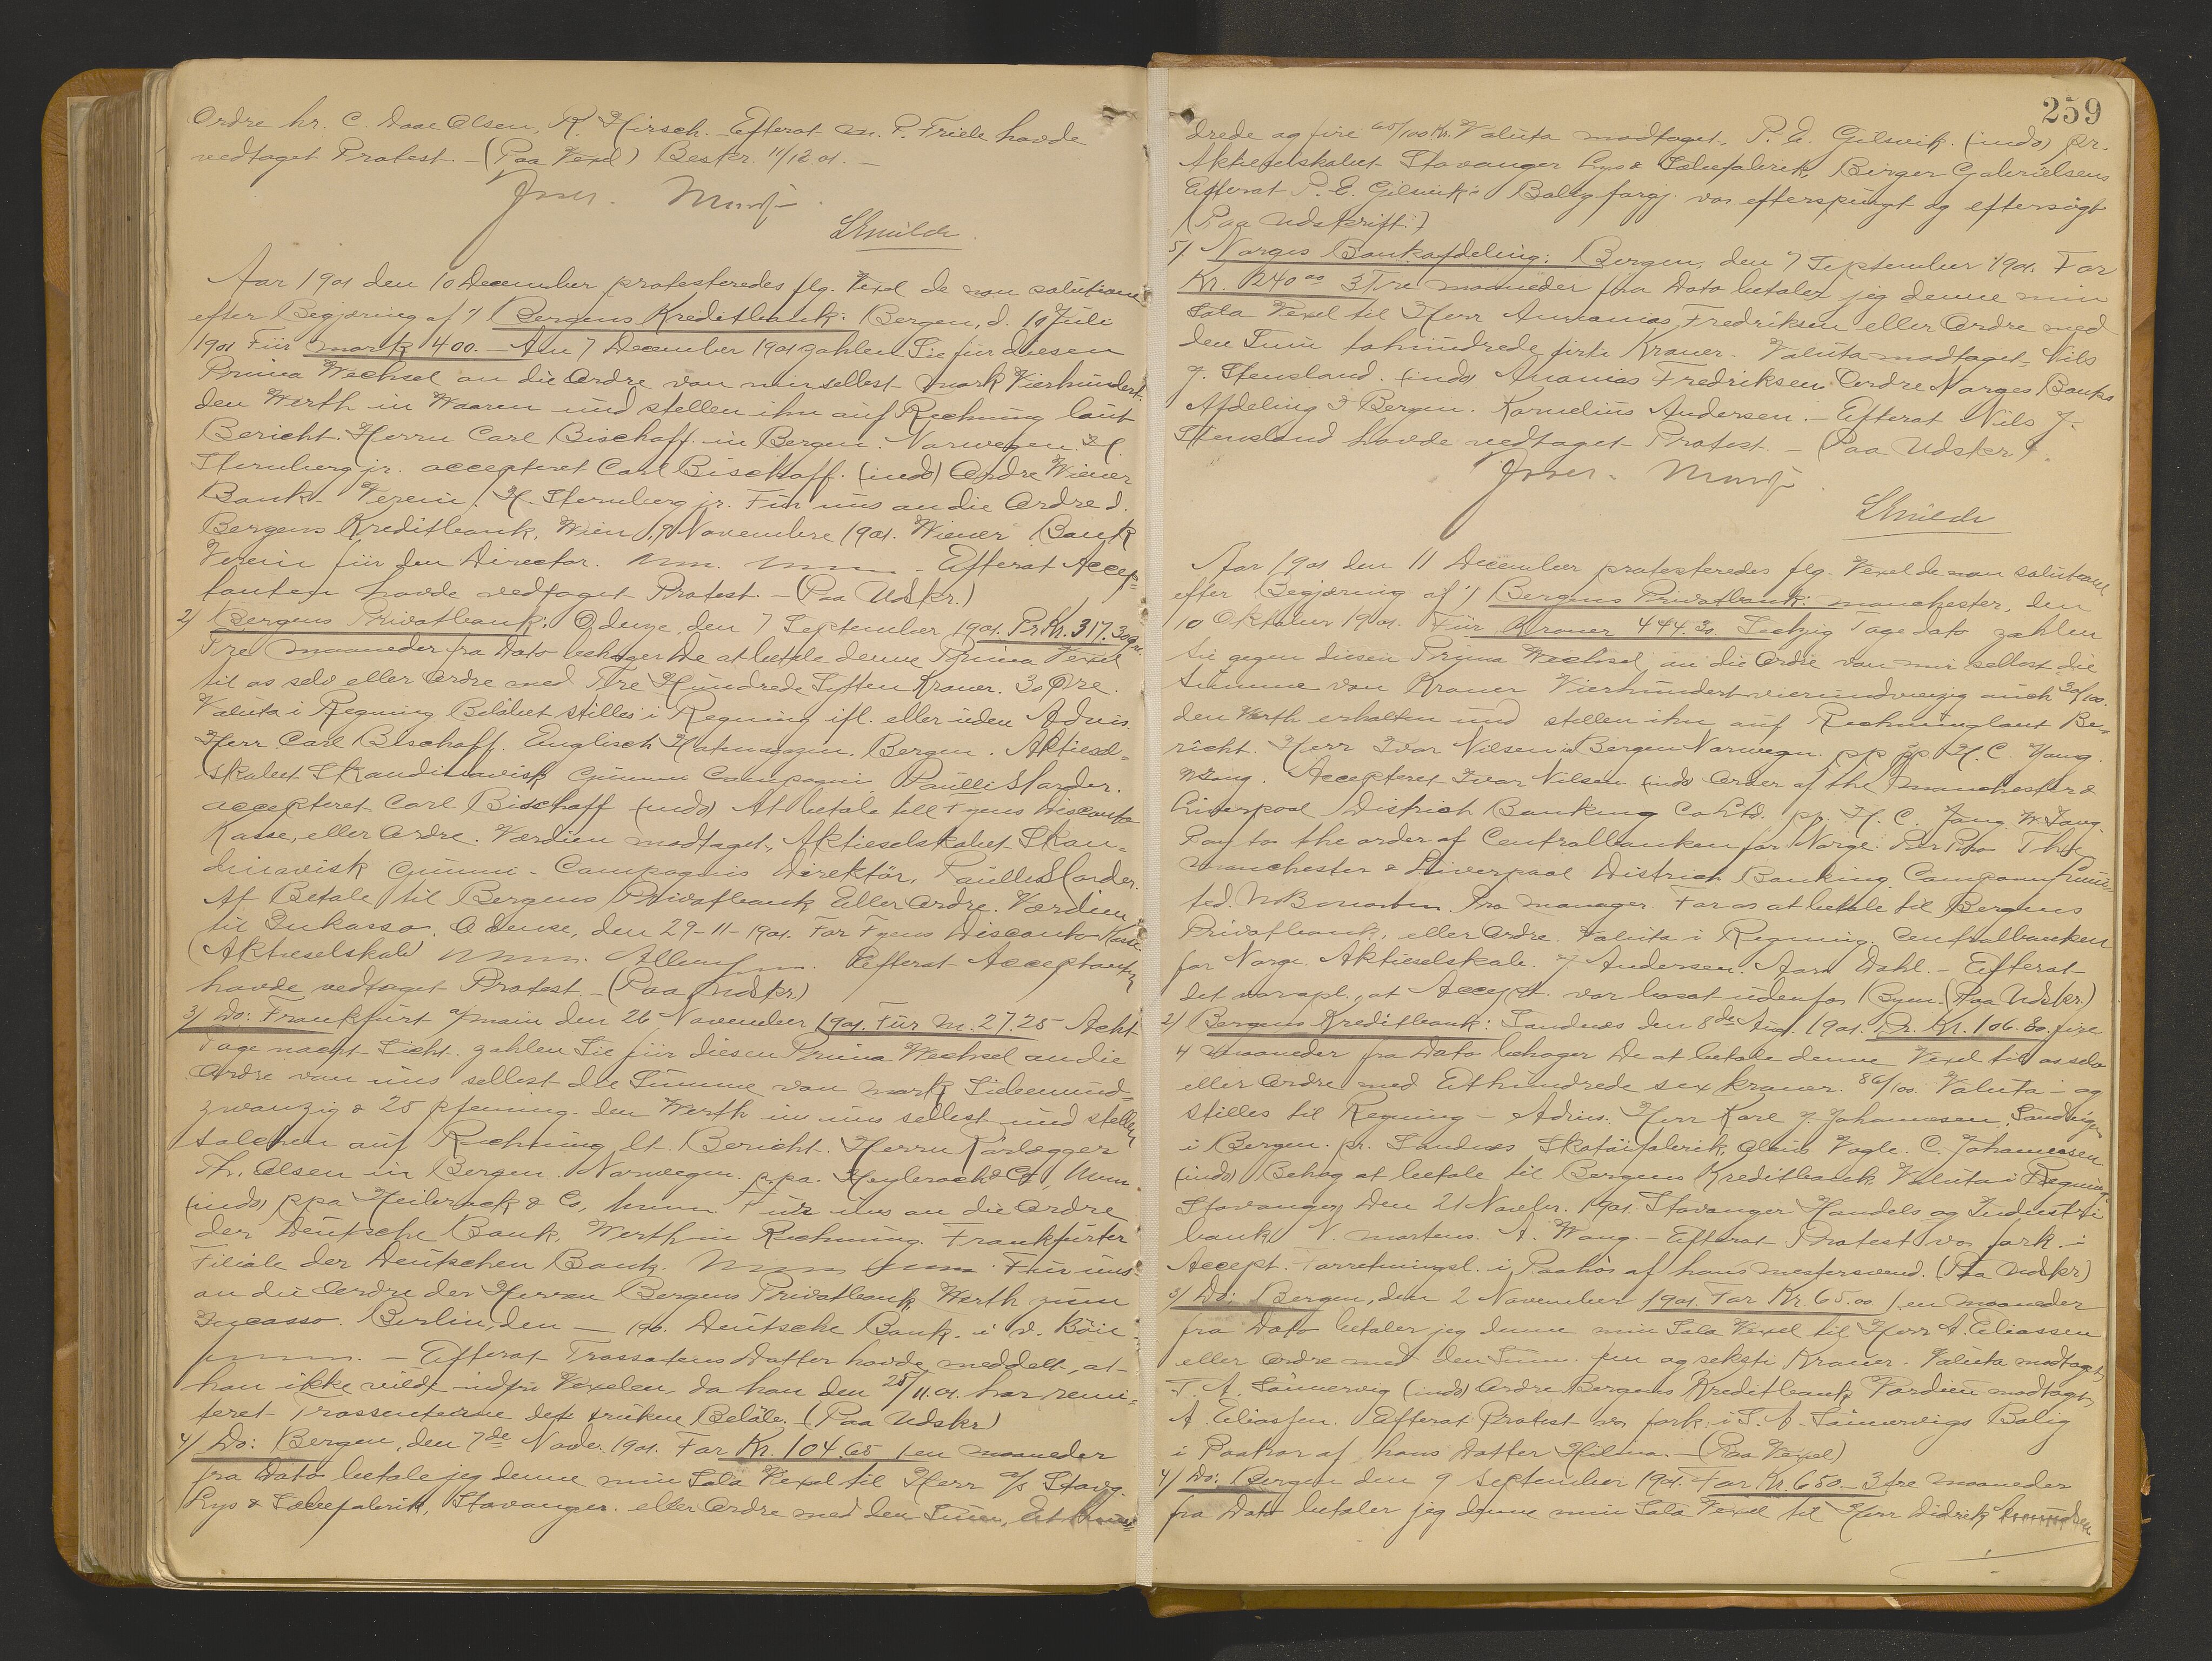 Ordre hr. C. Daae Olsen, R. Hirsch. Efterat m. P. Friele havde
vedtaget Protest. - (Paa Vexel) Beskr. 11/12 01. -
Aar 1901 den 10 December protesteredes flg. Vexel de non solutione
efter Begjæring af 1/ Bergens Kreditbank: Bergen, d. 10 Juli
1901 Für mark 400. - Am 7 December 1901 zahlen Sie für diesen
Prima Wechsel an die Ordre von mir selbst mark Vierhundert
den Werth in Waaren und stellen ihn auf Rechnung laut
Bericht. Herrn Carl Bischoff in Bergen. Norwegen. H.
Sternberg jr. accepteret Carl Bischoff. (indo) Ordre Wiener
Bank- Verein. H. Sternberg jr. Für uns an die Ordre d.
Bergens Kreditbank, Wien, 19 Novembre 1901. Wiener Bank
Verein für den Director. - Efterat Accep-
tanten havde vedtaget Protest. - (Paa Udskr.)
2/ Bergens Privatbank: Odense, den 7 September 1901. Pr. Kr. 317.30 Ør.
Tre maaneder fra Dato behager De at betale denne Prima Vexel
til os selv eller Ordre med Tre Hundrede Sytten Kroner. 30 Øre.
Valuta i Regning Beløbet stilles i Regning ifl. eller uden Advis.
Herr Carl Bischoff. Englisch Hatmagazin. Bergen. Aktiesel-
skabet Skandinavisk Gummi Compagni, Paulli Harder.
accepteret Carl Bischoff (indo) At betale till Fyens Disconto
Kasse, eller Ordre. Værdien modtaget, Aktieselskabet Skan-
dinavisk Gummi - Compagnis Direktør, Paulli Harder.
At Betale til Bergens Privatbank Eller Ordre. Værdien
til Inkasso. Odense, den 29-11-1901. For Fyens Disconto Kasse
(Aktieselskab) Efterat Acceptanten
havde vedtaget Protest - (Paa Udskr.)
3/ Do: Frankfurt a/main den 26 November 1901. Für M. 27.25 Acht
Tage nacht Sicht. zahlen Sie für diesen Prima Wechsel an die
Ordre von uns selbst die Summe von mark Siebenund-
zwanzig & 25 pfenning. den Werth in uns selbst und stellen
solchen auf Rechnung lt. Bericht. Herrn Rørlægger
Th. Olsen in Bergen. Norwegen. p.pa. &
(indo) ppa & Co, Für uns an die Ordre
der Deutsche Bank, Werth in Rechnung. Frankfurter
Filiale der Deutschen Bank. Für uns
an die Ordre der Herren Bergens Privatbank Werth zum
Incasso. Berlin, den — 190. Deutsche Bank.
- Efterat Trassatens Datter havde meddelt, at
han ikke vilde indfri Vexelen, da han den 25/11.01. har remi-
teret Trassenterne det trukne Beløb. - (Paa Udskr)
4/ Do: Bergen, den 7de Novbr. 1901. For Kr. 104.65 1 en maaneder
fra Dato betale jeg denne min Sola Vexel til Herr A/S Stavg.
Lys & Sæbefabrik, Stavanger. eller Ordre med den Sum, Et hun-
259
drede og fire 65/100 Kr. Valuta modtaget, P. E. Gilsvik. (indo) pr.
Aktieselskabet Stavanger Lys & Sæbefabrik, Birger Gabrielsens
Efterat P. E. Gilsvik's Bolig forgj. var efterspurgt og eftersøgt
(Paa Udskrift.)
5/ Norges Bankafdeling: Bergen, den 7 September 1901. For
Kr. 240.00 3 Tre maaneder fra Dato betaler jeg denne min
Sola Vexel til Herr Ananias Fredriksen eller Ordre med
den Sum tohundrede firti Kroner. Valuta modtaget. Nils
J. Stensland. (indo) Ananias Fredriksen Ordre Norges Banks
Afdeling I Bergen. Kornelius Andersen. - Efterat Nils J.
Stensland havde vedtaget Protest. - (Paa Udskr).
Aar 1901 den 11 December protesteredes flg. Vexel de non solutione
efter Begjæring af 1/ Bergens Privatbank: manchester, den
10 Oktober 1901. Für Kroner 444.30. Sechzig Tage dato zahlen
Sie gegen diesen Prima Wechsel an die Ordre von mir selbst die
Summe von Kroner Vierhundertvierundvierzig auch 30/100.
den Werth erhalten und stellen ihn auf Rechnung laut Be-
richt. Herr Ivar Nilsen i Bergen Norwegen. pp H. C. Yang.
Accepteret Ivar Nilsen (indo) Order of the manchester &
Liverpool District Banking Co Ltd. pp. H. C. Yang.
Pay to the order of Centralbanken for Norge: Per Pro The
manchester & Liverpool District Banking Company Limi-
ted. Pro manager For os at betale til Bergens
Privatbank, eller Ordre. Valuta i Regning. Centralbanken
for Norge. Aktieselskab. J. Andersen. Dahl. - Efterat
det var opl., at Accept. var bosat udenfor Byen. (Paa Udskr.)
2/ Bergens Kreditbank: Sandnes den 8de Aug. 1901. Pr. Kr. 106.80. fire
4 maaneder fra Dato behager De at betale denne Vexel til os selv
eller Ordre med Ethundrede sex kroner. 86/100. Valuta - og
stilles til Regning - Advis. Herr Karl J. Johannesen, Sandvigen
i Bergen. pr. Sandnes Skotøifabrik, Olaus Vagle. C. Johannesen
(indo) Behag at betale til Bergens Kreditbank Valuta i Regning
Stavanger, Den 21 Novbr. 1901. Stavanger Handels og Industri
bank N. mortens. A. Wang. - Efterat Protest var fork. i
Accept. Forretningsl. i Paahør af hans mestersvend. (Paa Udskr)
3/ Do: Bergen, den 2 November 1901. For Kr. 65.00 1 en maaneder
fra Dato betaler jeg denne min Sola Vexel til Herr A. Eliassen
eller Ordre med den Sum. fem og seksti Kroner. Valuta modtaget,
T. A. Sønnervig (indo) Ordre Bergens Kreditbank Værdien modtaget,
A. Eliassen. Efterat Protest var fork. i T. A. Sønnervigs Bolig
i Paahør af hans Datter Hilma. - (Paa Vexel)
4/ Do: Bergen den 9 September 1901. For Kr. 650 - 3 tre maaneder
fra Dato betaler jeg denne min Sola Vexel til Herr Didrik